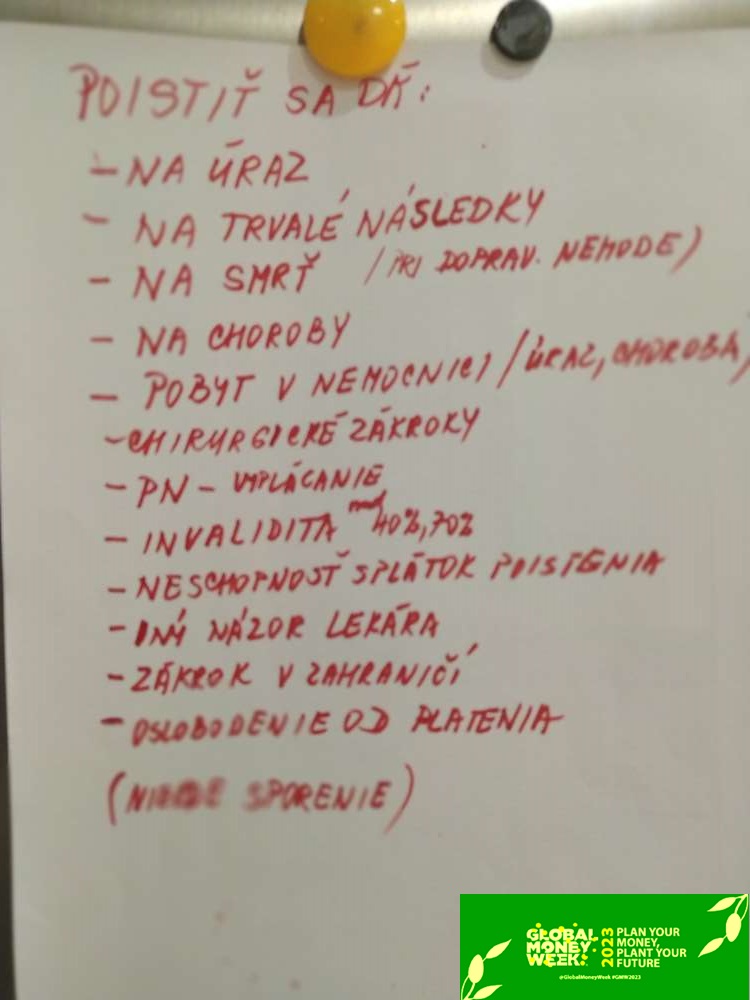 POISTIŤ SA DÁ:
- NA ÚRAZ
- NA TRVALÉ NÁSLEDKY
- NA SMRŤ /PRI DOPRAV. NEHODE)
- NA CHOROBY
- POBYT V NEMOCNICI /ÚRAZ, CHOROBA)
- CHIRURGICKÉ ZÁKROKY
- PN - VYPLÁCANIE
- INVALIDITA nad 40%, 70%
- NESCHOPNOSŤ SPLÁTOK POISTENIA
- INÝ NÁZOR LEKÁRA
- ZÁKROK V ZAHRANIČÍ
- OSLOBODENIE OD PLATENIA
( SPORENIE)
GLOBAL MONEY WEEK 2023
PLAN YOUR MONEY, PLANT YOUR FUTURE
@GlobalMoneyWeek #GMW2023